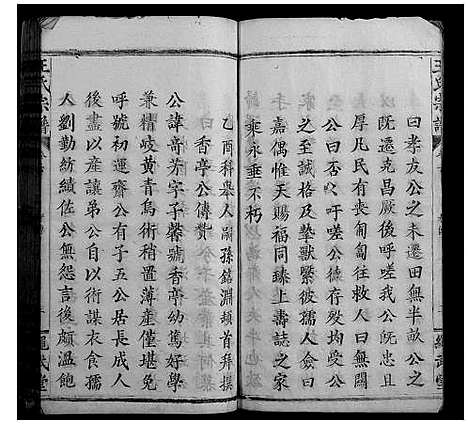 王氏宗譜
曰孝友公之未遷田無半畝公之
以既遷克昌厥後呼嗟我公既忠且
厚凡民有喪匍匐往救人曰無關
公曰否以吁嗟公德存歿均受公
之至誠格及蟄獸繄彼孺人僉曰
嘉偶惟天賜福同臻上壽誌之家
乘永垂不朽
乙酉科舉人嗣孫銘淵頓首拜撰
香亭公傳贊
公諱薔芳字子馨號香亭幼篤好學
兼精岐黃青烏術稍置薄產僅堪免
呼號初運齋公有子五公居長成人
後盡以產讓弟公自以術謀衣食孺
人劉勤紡績佐公無怨言後頗溫飽
王氏宗譜
繩武堂
繩武堂